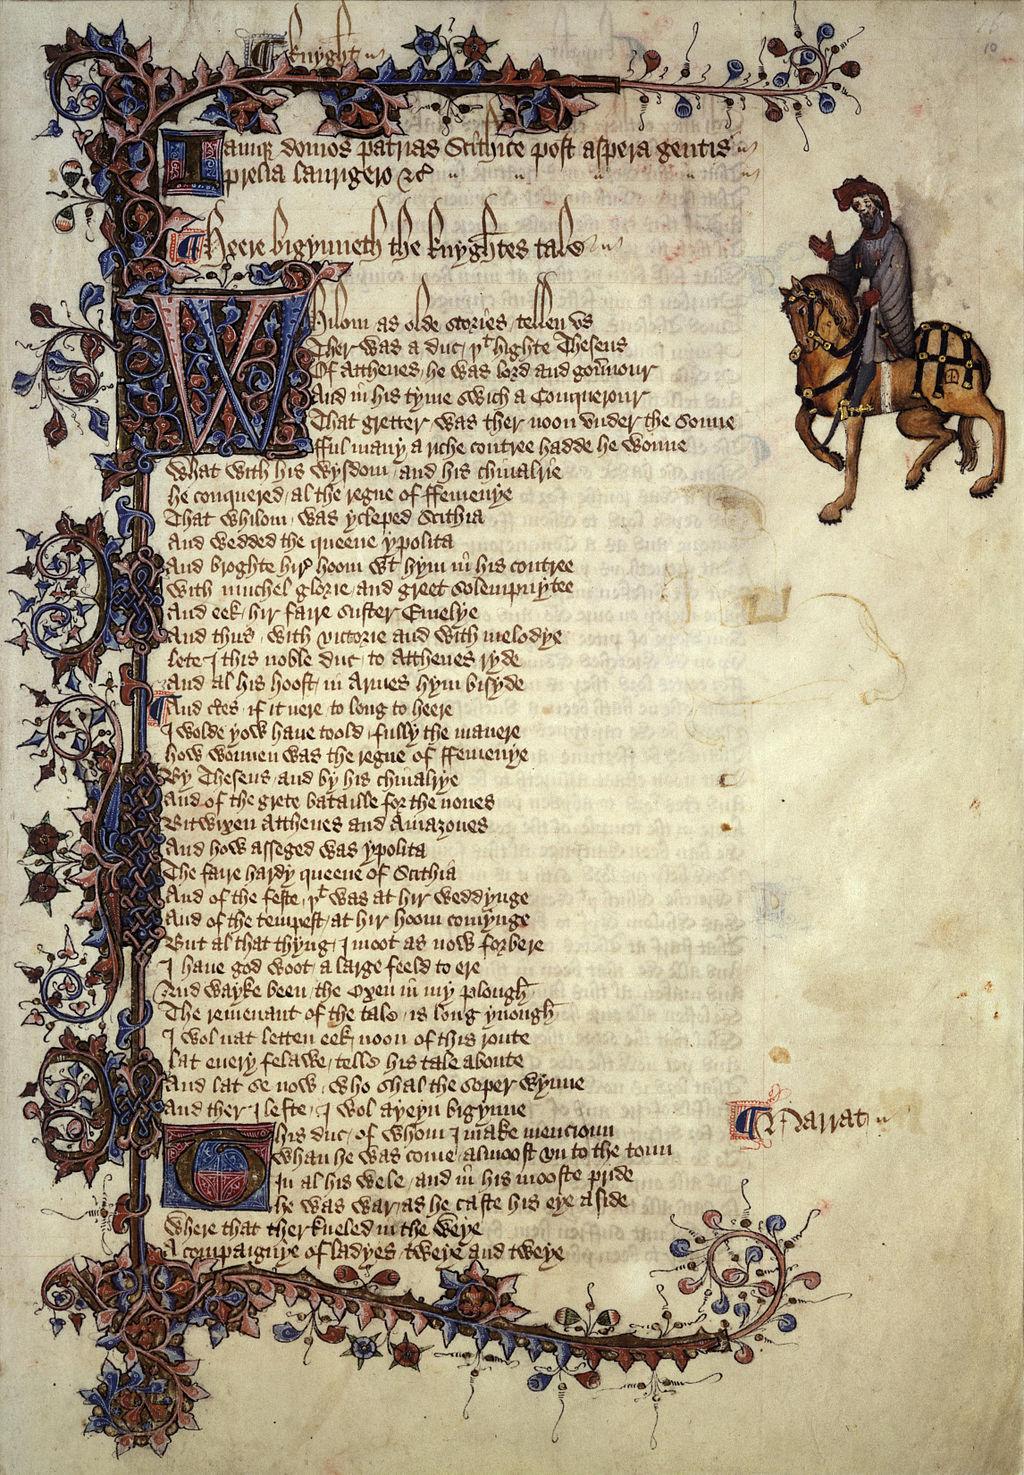 ¶ Knyght
Iamq; domos patrias Scithice post aspera gentis
prelia laurigero &c̃
¶ Heere bigynneth the knyghtes tale
Whilom as olde stories / tellen vs
Ther was a duc / þᵗ highte Theseus
Of Atthenes / he was lord and gou̅nour
And in his tyme swich a Conquerour
That gretter was ther noon vnder the sonne
fful many a riche contree hadde he wonne
What with his wysdom / and his chiualrie
he conquered / al the regne of ffemenye
That whilom / was ycleped Scithia
And wedded the queene ypolita
And broghte hir̛ hoom wᵗ hym in̅ his contree
With muchel glorie / and greet solempnytee
And eek / hir faire suster Emelye
And thus / with victorie and with melodye
lete I this noble duc / to Atthenes ryde
And al his hoost / in Armes hym bisyde
¶ And ctes / if it nere to long to heere
I wolde yow haue toold / fully the manere
how wonnen was the regne of ffemenye
By Theseus and by his chiualrye
And of the grete bataille for the nones
Bitwixen Atthenes and Amazones
And how asseged was ypolita
The faire hardy queene of Scithia
And of the feste / þᵗ was at hir weddynge
And of the tempest / at hir hoom comynge
But al that thyng / I moot as now forbere
I haue god woot / a large feeld to ere
And wayke been / the Oxen in my plough
The remenant of the tale / is long ynough
I wol nat letten eek / noon of this route
lat euery felawe / telle his tale aboute
And lat se now / who shal the soper wynne
And ther I lefte / I wol ayeyn bigynne
This duc / of whom I make mencioun
Whan he was come / almoost vn to the toun
In al his wele / and in̅ his mooste pride
he was war / as he caste his eye aside
Where that ther kneled in the weye
A compaignye of ladyes / tweye and tweye
¶ Narrat